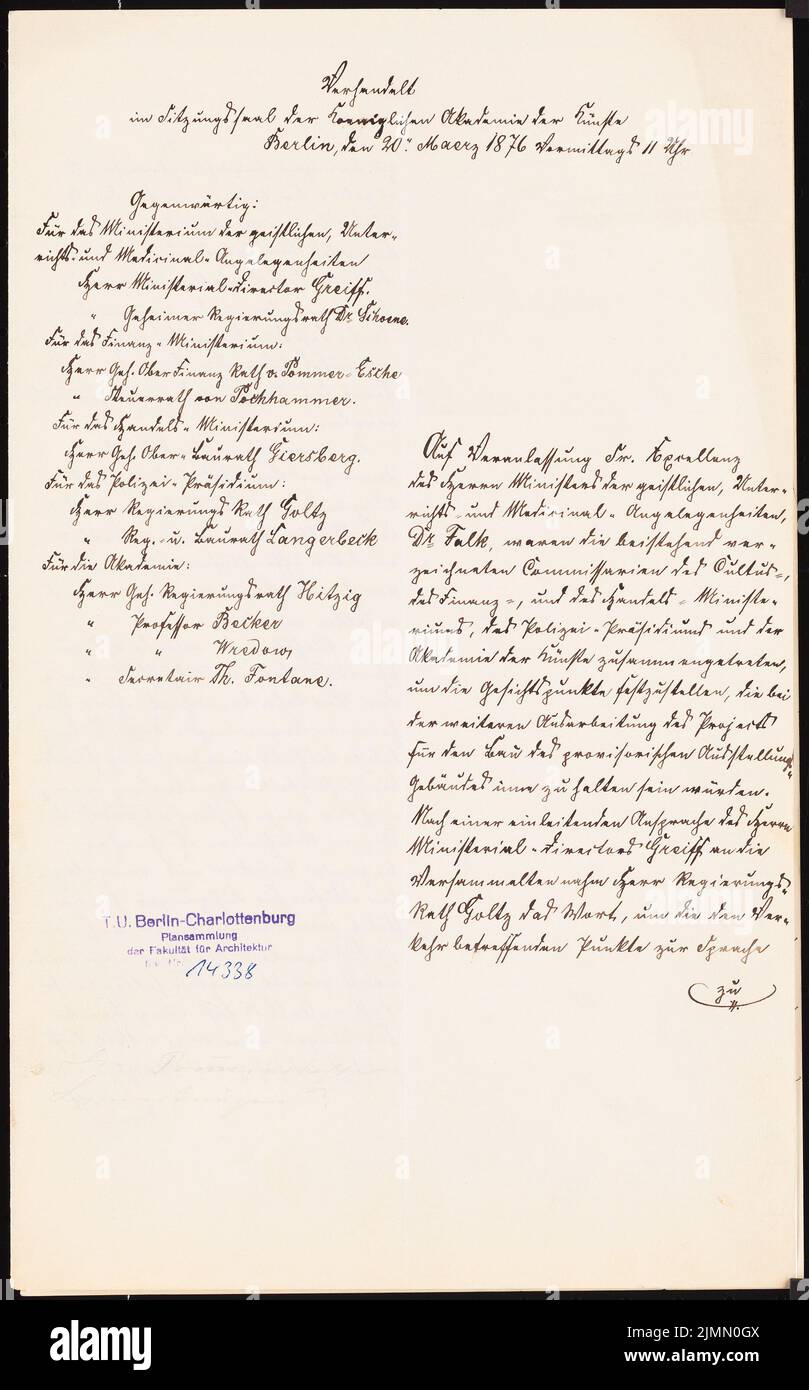 Verhandelt
im Sitzungssaal der Koeniglichen Akademie der Künste
Berlin, den 20n Maerz 1876 Vormittags 11 Uhr
Gegenwärtig:
Für das Ministerium der geistlichen, Unter-
richts- und Medicinal-Angelegenheiten
Herr Ministerial-Director Greiff.
" Geheimer Regierungsrath Dr Schoene.
Für das Finanz-Ministerium:
Herr Geh. Ober Finanz Rath v. Pommer-Esche
" Steuerrath von Pochhammer.
Für das Handels-Ministerium:
Herr Geh. Ober-Baurath Giersberg.
Für das Polizei-Präsidium:
Herr Regierungs Rath Goltz
" Reg.- u. Baurath Langerbeck
Für die Akademie:
Herr Geh. Regierungsrath Hitzig
" Professor Becker
" " Wredow,
" Secretair Th. Fontane.
Auf Veranlassung Sr. Excellenz
des Herrn Ministers der geistlichen, Unter-
richts- und Medicinal-Angelegenheiten,
Dr Falk, waren die beistehend ver-
zeichneten Commissarien des Cultus-,
des Finanz-, und des Handels-Ministe-
riums, des Polizei-Präsidiums und der
Akademie der Künste zusammengetreten,
um die Gesichtspunkte festzustellen, die bei
der weiteren Ausarbeitung des Projects
für den Bau des provisorischen Ausstellungs-
Gebäudes inne zu halten sein würden.
Nach einer einleitenden Ansprache des Herrn
Ministerial-Directors Greiff an die
Versammelten nahm Herr Regierungs-
Rath Goltz das Wort, um die den Ver-
kehr betreffenden Punkte zur Sprache
zu
T.U. Berlin-Charlottenburg
Plansammlung
der Fakultät für Architektur
14338
alamy
Image ID: 2JMN0GX
www.alamy.com